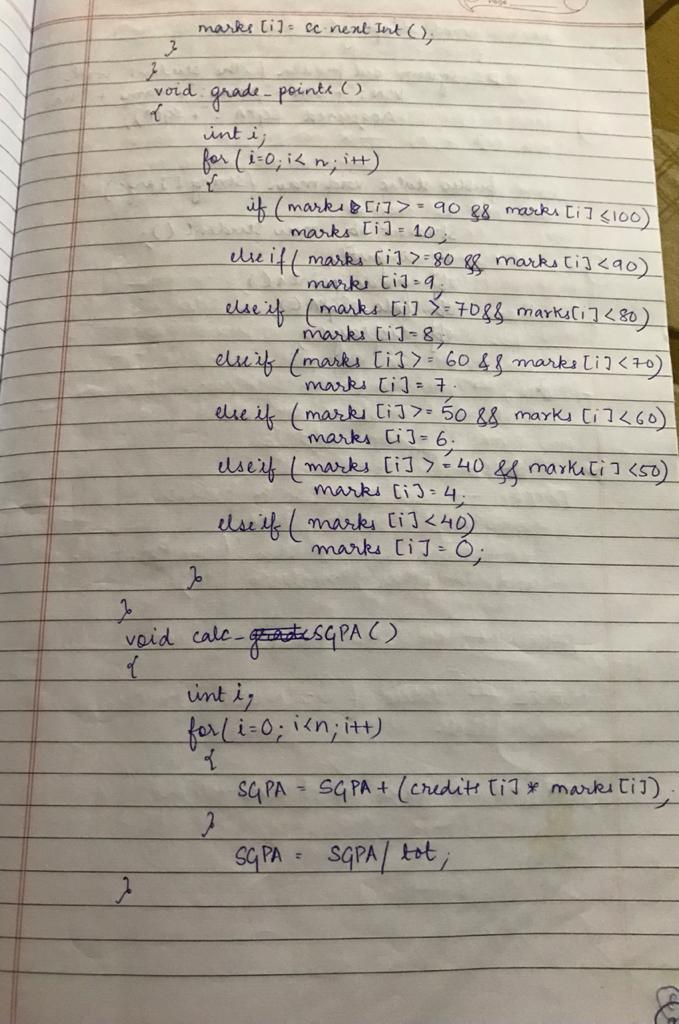 marks [i] = cc.next Int ();
}
}
void grade_points ()
{
int i;
for (i=0; i< n; i++)
{
if (marks [i] >= 90 && marks [i] ≤100)
marks [i] = 10;
else if ( marks [i] >=80 && marks [i] <90)
marks [i] = 9;
else if (marks [i] >= 70 && marks[i] < 80)
marks [i] = 8;
else if (marks [i] >= 60 && marks [i] <70)
marks [i] = 7.
else if (marks [i] >= 50 && marks [i] <60)
marks [i] = 6;
else if ( marks [i] > = 40 && marks[i] <50)
marks [i] = 4;
else if ( marks [i] <40)
marks [i] = 0;
}
}
void calc_SGPA ()
{
int i;
for( i=0; i<n; i++)
{
SGPA = SGPA + (credits [i] * marks [i]);
}
SGPA = SGPA / tot;
}